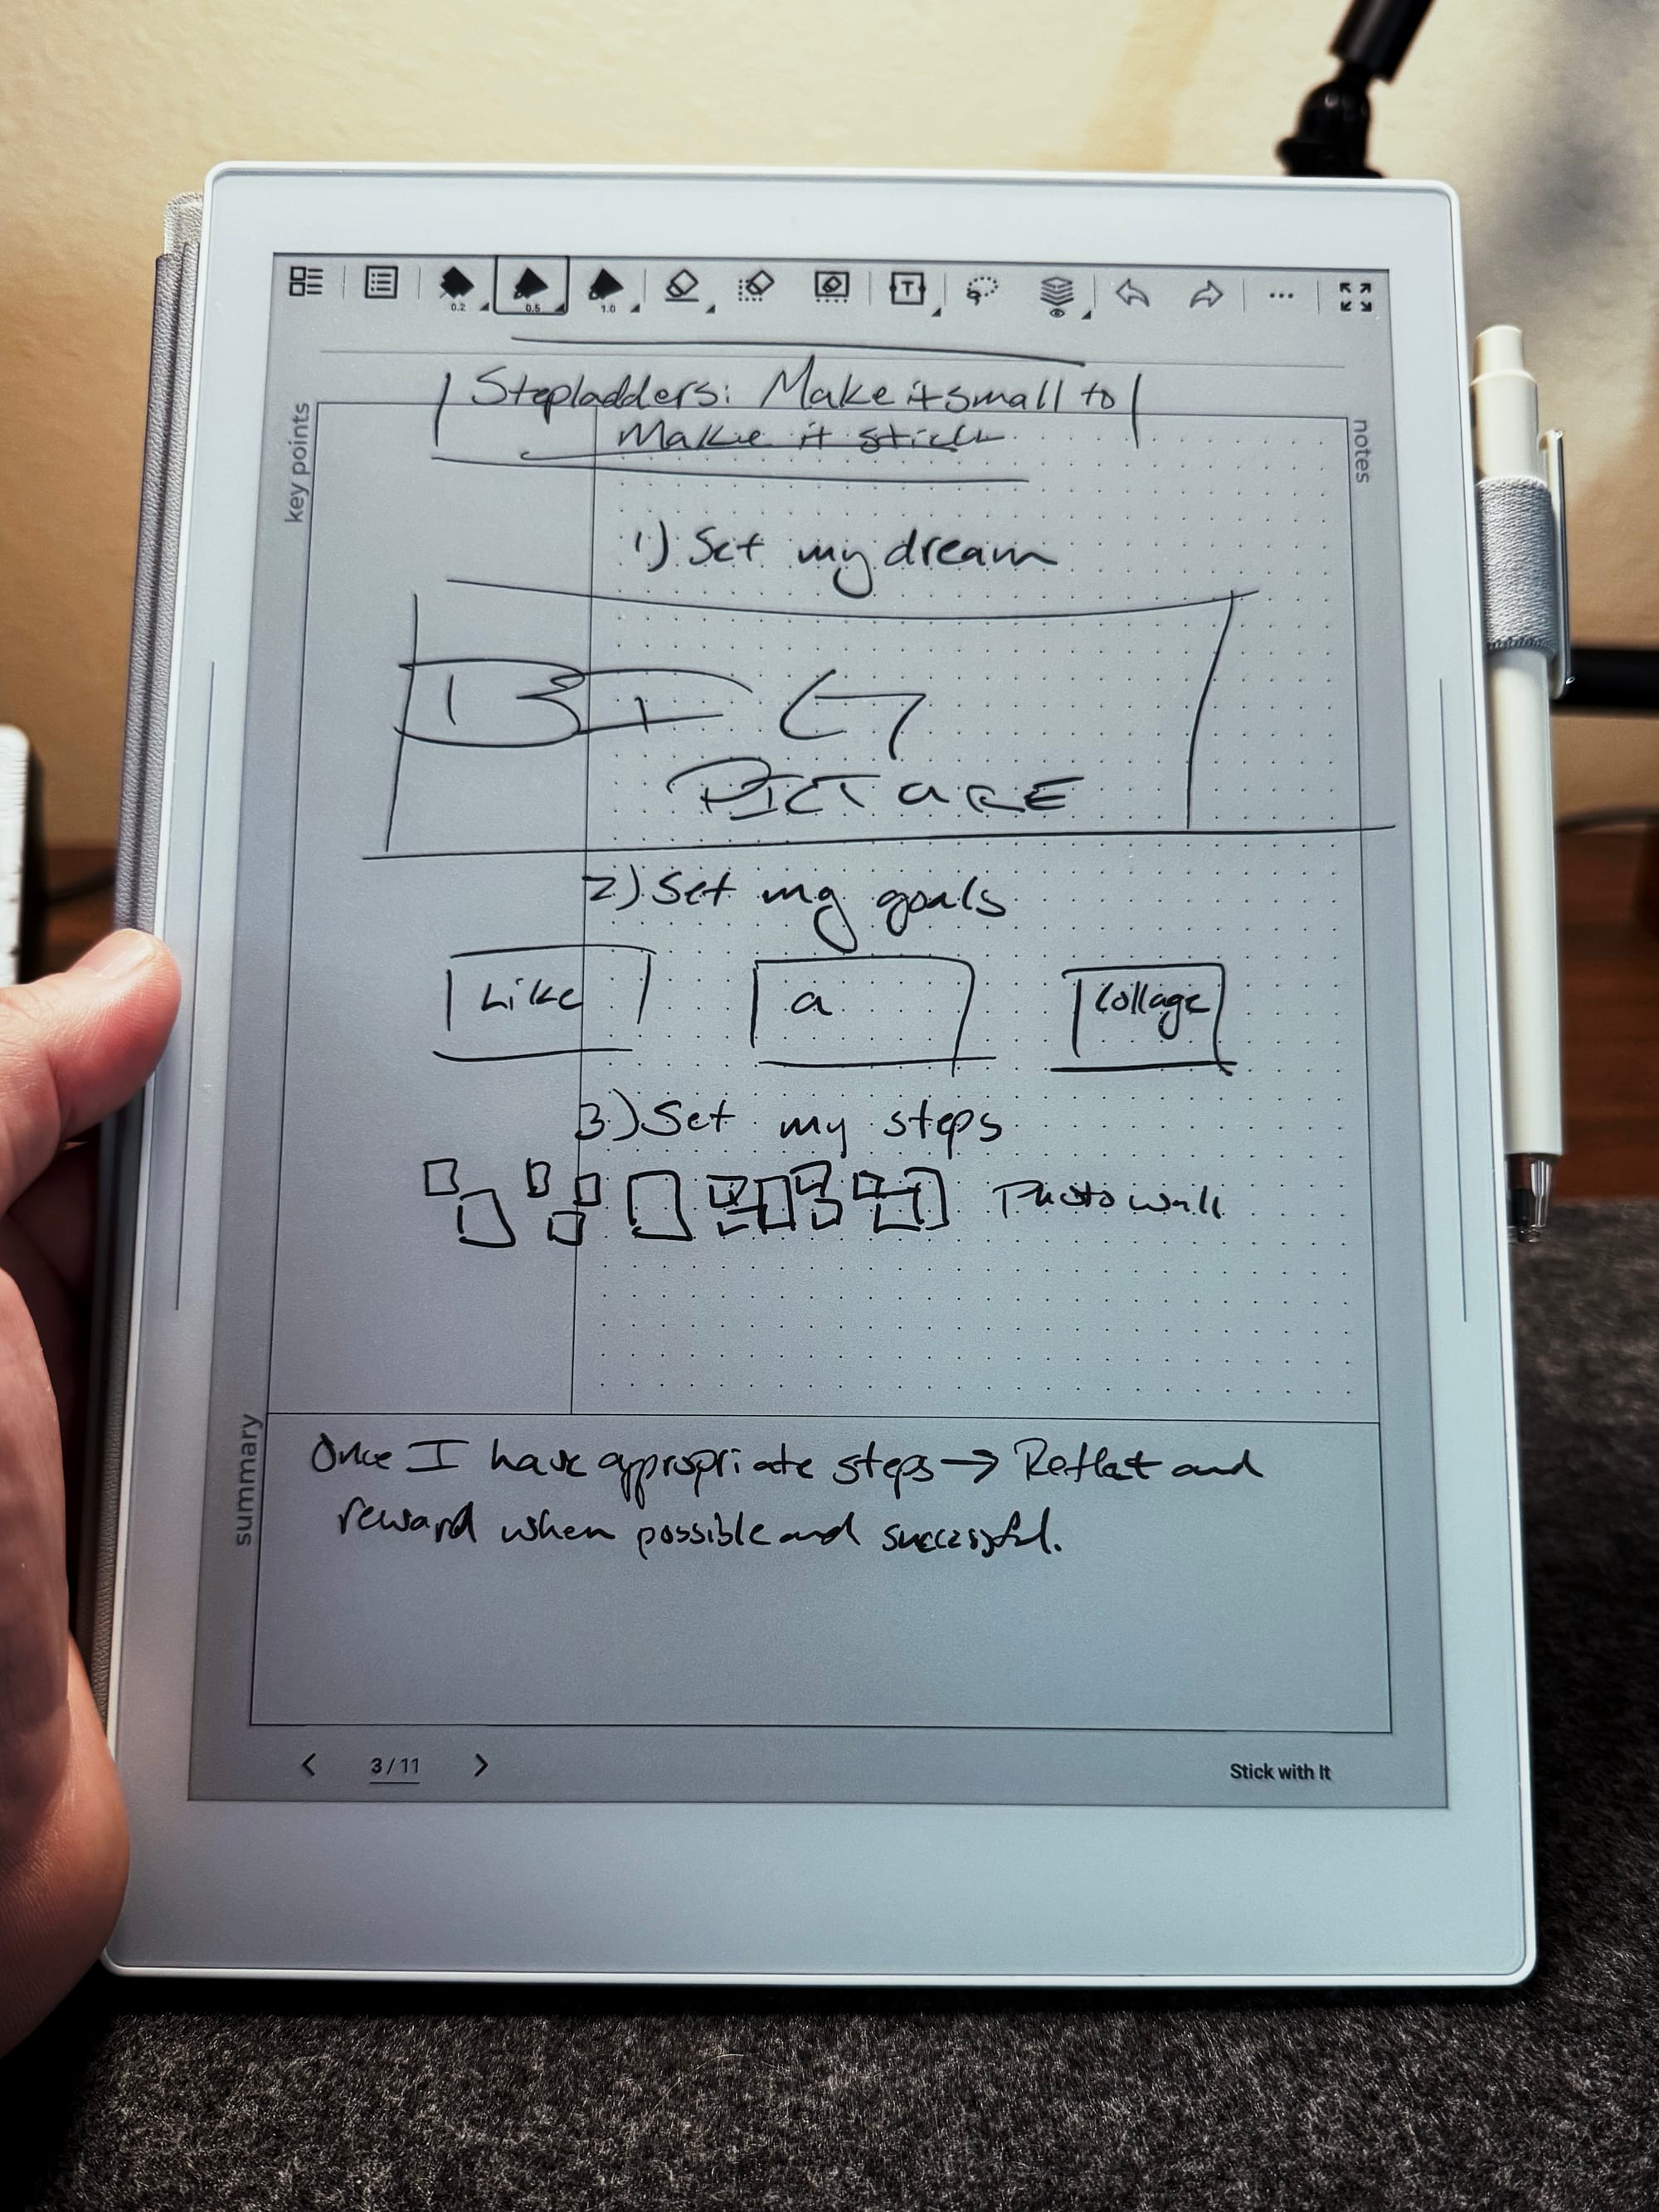 0.2 0.5 1.0 T
Stepladders: Make it small to
Make it stick
key points
notes
1) Set my dream
BIG
PICTURE
2) Set my goals
Like a Collage
3) Set my steps
Photo wall
summary
Once I have appropriate steps → Reflect and
reward when possible and successful.
3 / 11
Stick with It